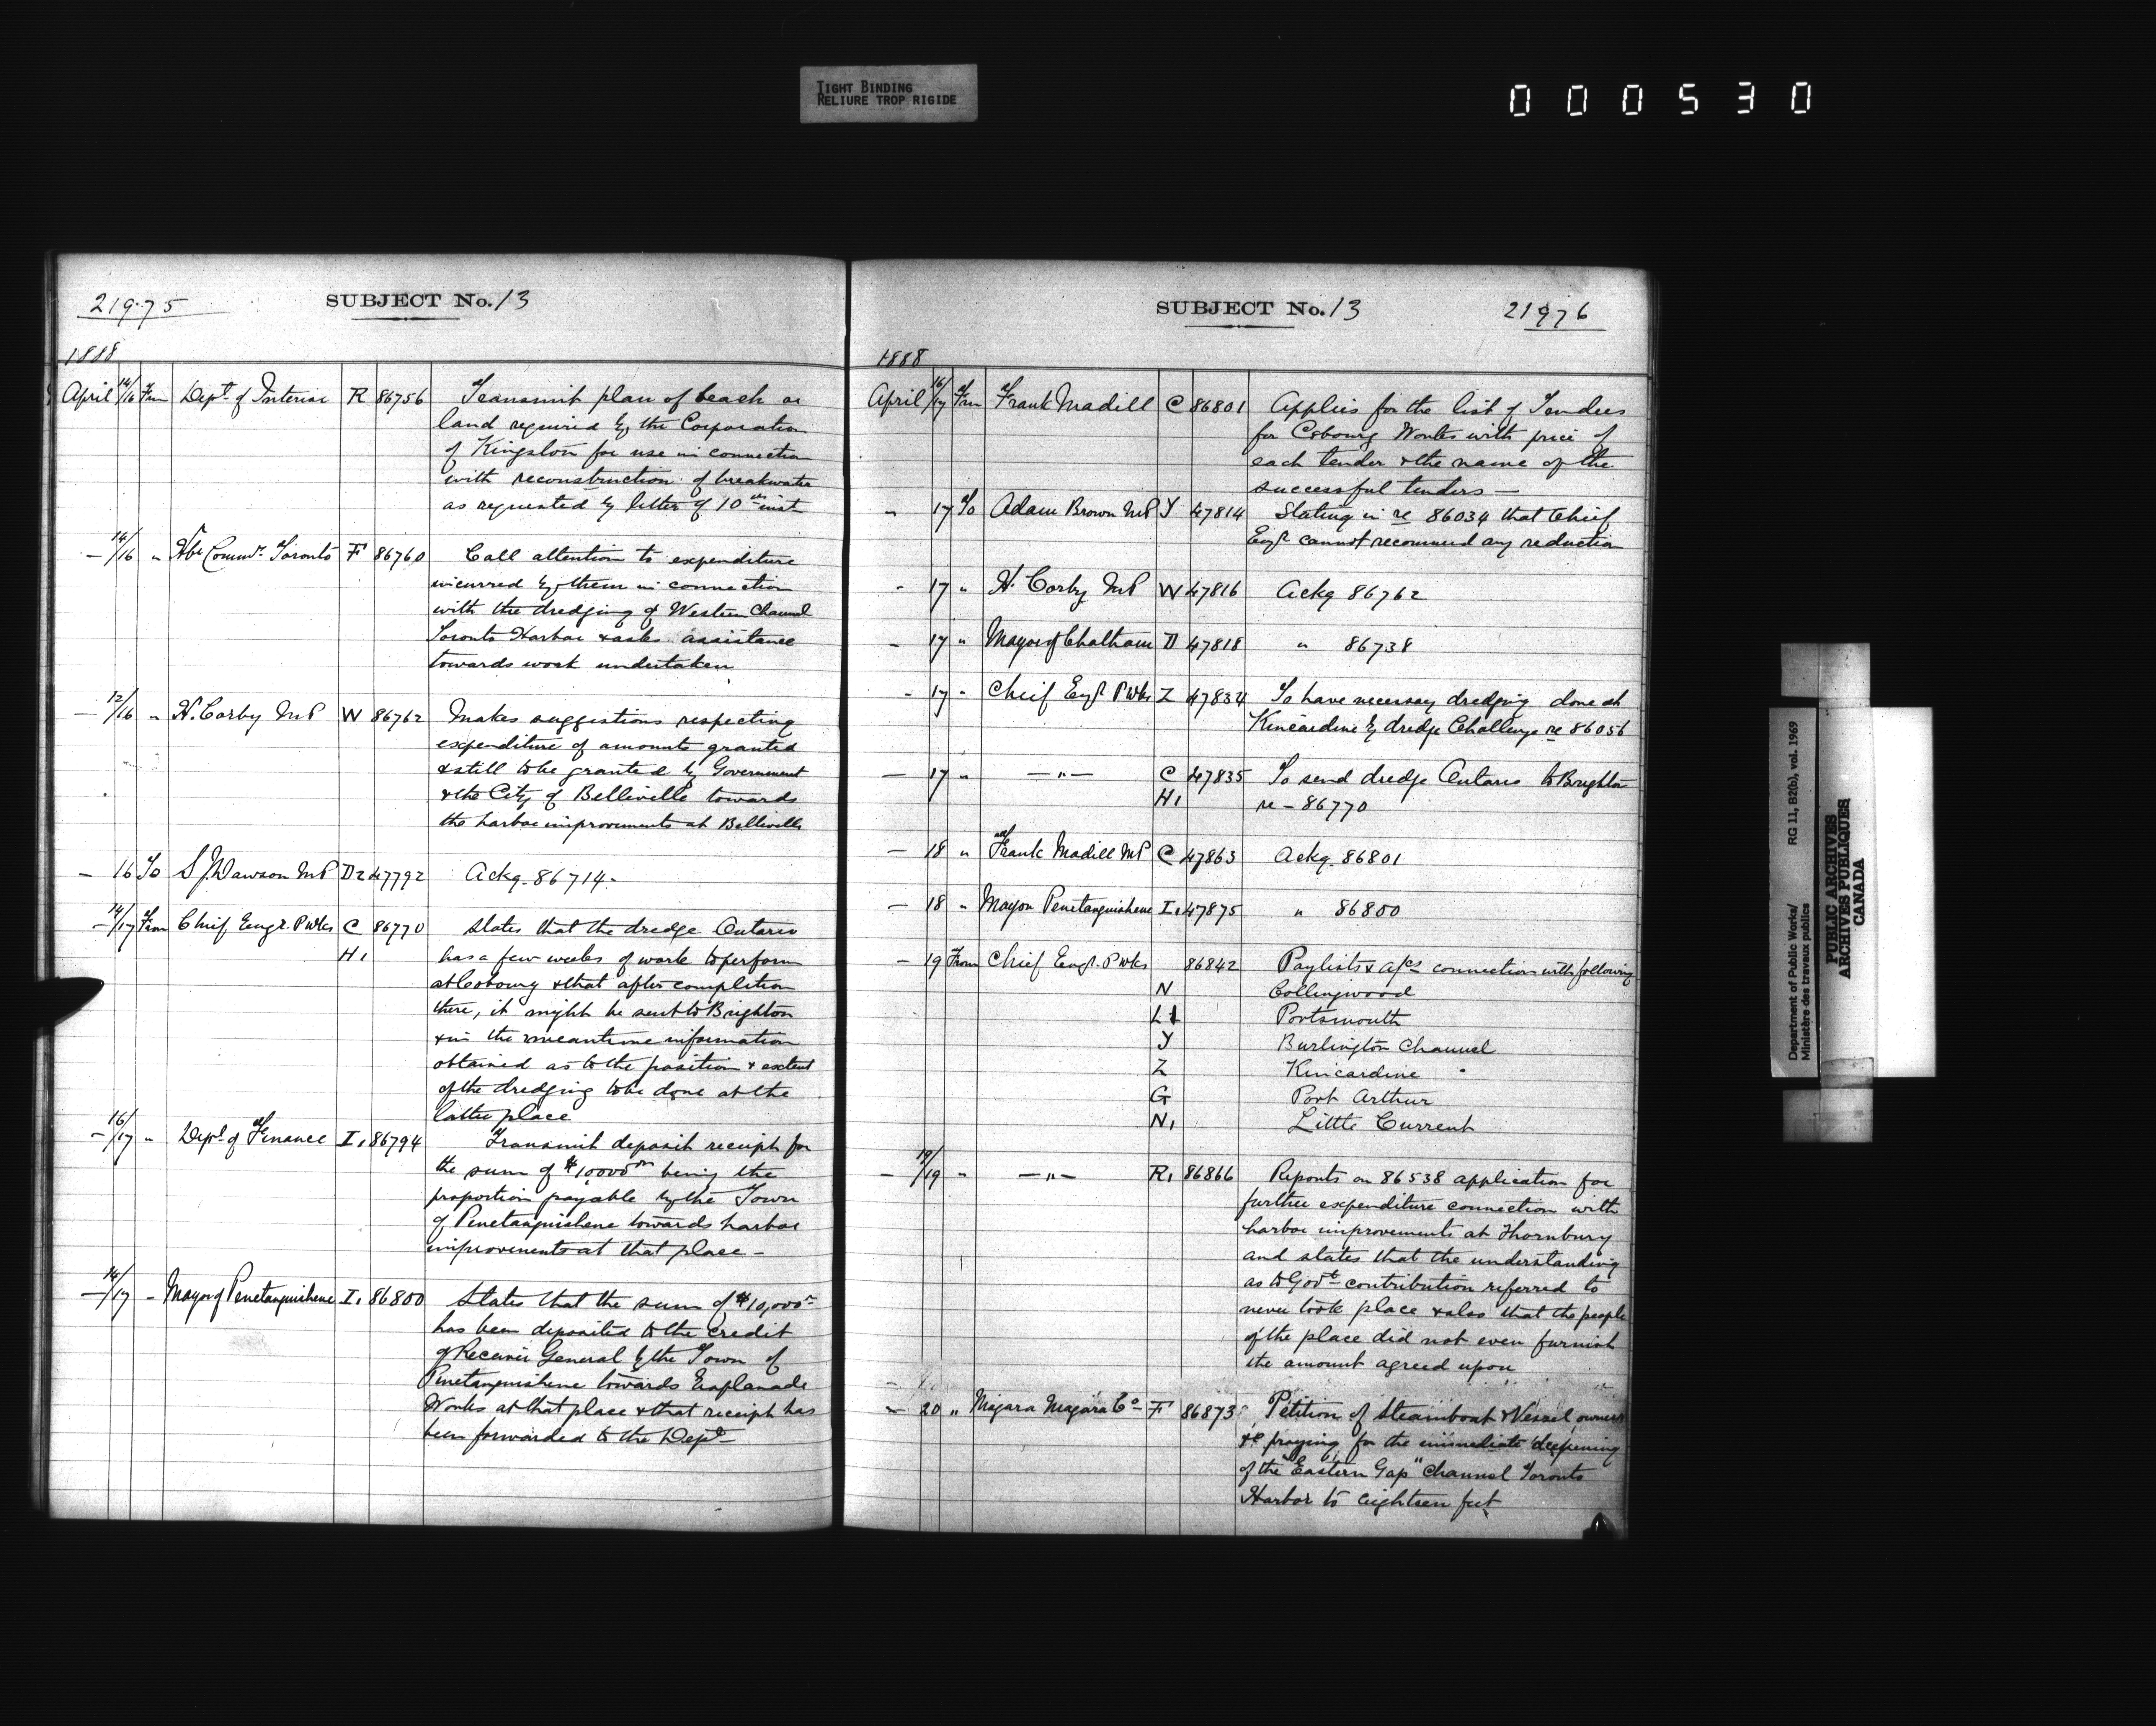 TIGHT BINDING
RELIURE TROP RIGIDE
000530
219·75
SUBJECT No. 13
1888
April 14/16 From Dept of Interior R 86756 Transmit plan of beach or
land required by the Corporation
of Kingston for use in connection
with reconstruction of breakwater
as requested by letter of 10th inst
— 14/16 " Hbr Commrs Toronto F 86760 Call attention to expenditure
incurred by them in connection
with the dredging of Western Channel
Toronto Harbor & asks assistance
towards work undertaken
— 12/16 " H. Corby MP W 86762 Makes suggestions respecting
expenditure of amounts granted
& still to be granted by Government
& the City of Belleville towards
the harbor improvements at Belleville
— 16 To S J Dawson MP D2 47792 Ackg. 86714.
— 14/17 From Chief Engr. P Wks C 86770 States that the dredge Ontario
H1 has a few weeks of work to perform
at Cobourg & that after completion
there, it might be sent to Brighton
& in the meantime information
obtained as to the position & extent
of the dredging to be done at the
latter place
— 16/17 " Dept of Finance I1 86794 Transmit deposit receipt for
the sum of $10000 00 being the
proportion payable by the Town
of Penetanguishene towards harbor
improvements at that place —
— 14/17 " Mayor of Penetanguishene I1 86800 States that the sum of $10,000
has been deposited to the credit
of Receiver General by the Town of
Penetanguishene towards Esplanade
Works at that place & that receipt has
been forwarded to the Dept —
SUBJECT No. 13
21976
1888
April 16/17 From Frank Madill C 86801 Applies for the list of Tenders
for Cobourg Works with price of
each tender & the name of the
successful tenders —
" 17 To Adam Brown MP Y 47814 Stating in re 86034 that Chief
Engr cannot recommend any reduction
- 17 " H. Corby MP W 47816 Ackg 86762
- 17 " Mayor of Chatham D 47818 " 86738
- 17 " Chief Engr P Wks Z 47834 To have necessary dredging done at
Kincardine by dredge Challenge re 86056
— 17 " — " — C 47835 To send dredge Ontario to Brighton
H1 re — 86770
— 18 " Frank Madill MP C 47863 Ackg. 86801
— 18 " Mayor Penetanguishene I1 47875 " 86800
— 19 From Chief Engr. P Wks 86842 Paylists & a/cs connection with following
N Collingwood
L1 Portsmouth
Y Burlington Channel
Z Kincardine "
G Port Arthur
N1 Little Current
— 19/19 " — " — R1 86866 Reports on 86538 application for
further expenditure connection with
harbor improvements at Thornbury
and states that the understanding
as to Govt contribution referred to
never took place & also that the people
of the place did not even furnish
the amount agreed upon
— 20 " Niagara Co F 86873 Petition of Steamboat & Vessel owners
&c praying for the immediate deepening
of the "Eastern Gap" Channel Toronto
Harbor to eighteen feet
Department of Public Works/ RG 11, B2(b), vol. 1969
Ministère des travaux publics
PUBLIC ARCHIVES
ARCHIVES PUBLIQUES
CANADA